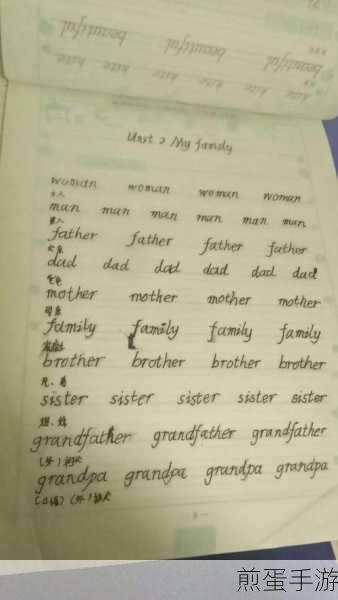 beautiful beautiful beautiful
kite kite kite kite kite
Unit 2 My family
woman woman woman woman
女人
man man man man man man
男人
father father father father
父亲
dad dad dad dad dad dad
爸爸
mother mother mother mother
母亲
family family family family
家庭
brother brother brother brother
兄、弟
sister sister sister sister sister
姐、妹
grandfather grandfather grandfather
(外)祖父
grandpa grandpa grandpa grandpa
(口语)(外)祖父
煎蛋手游